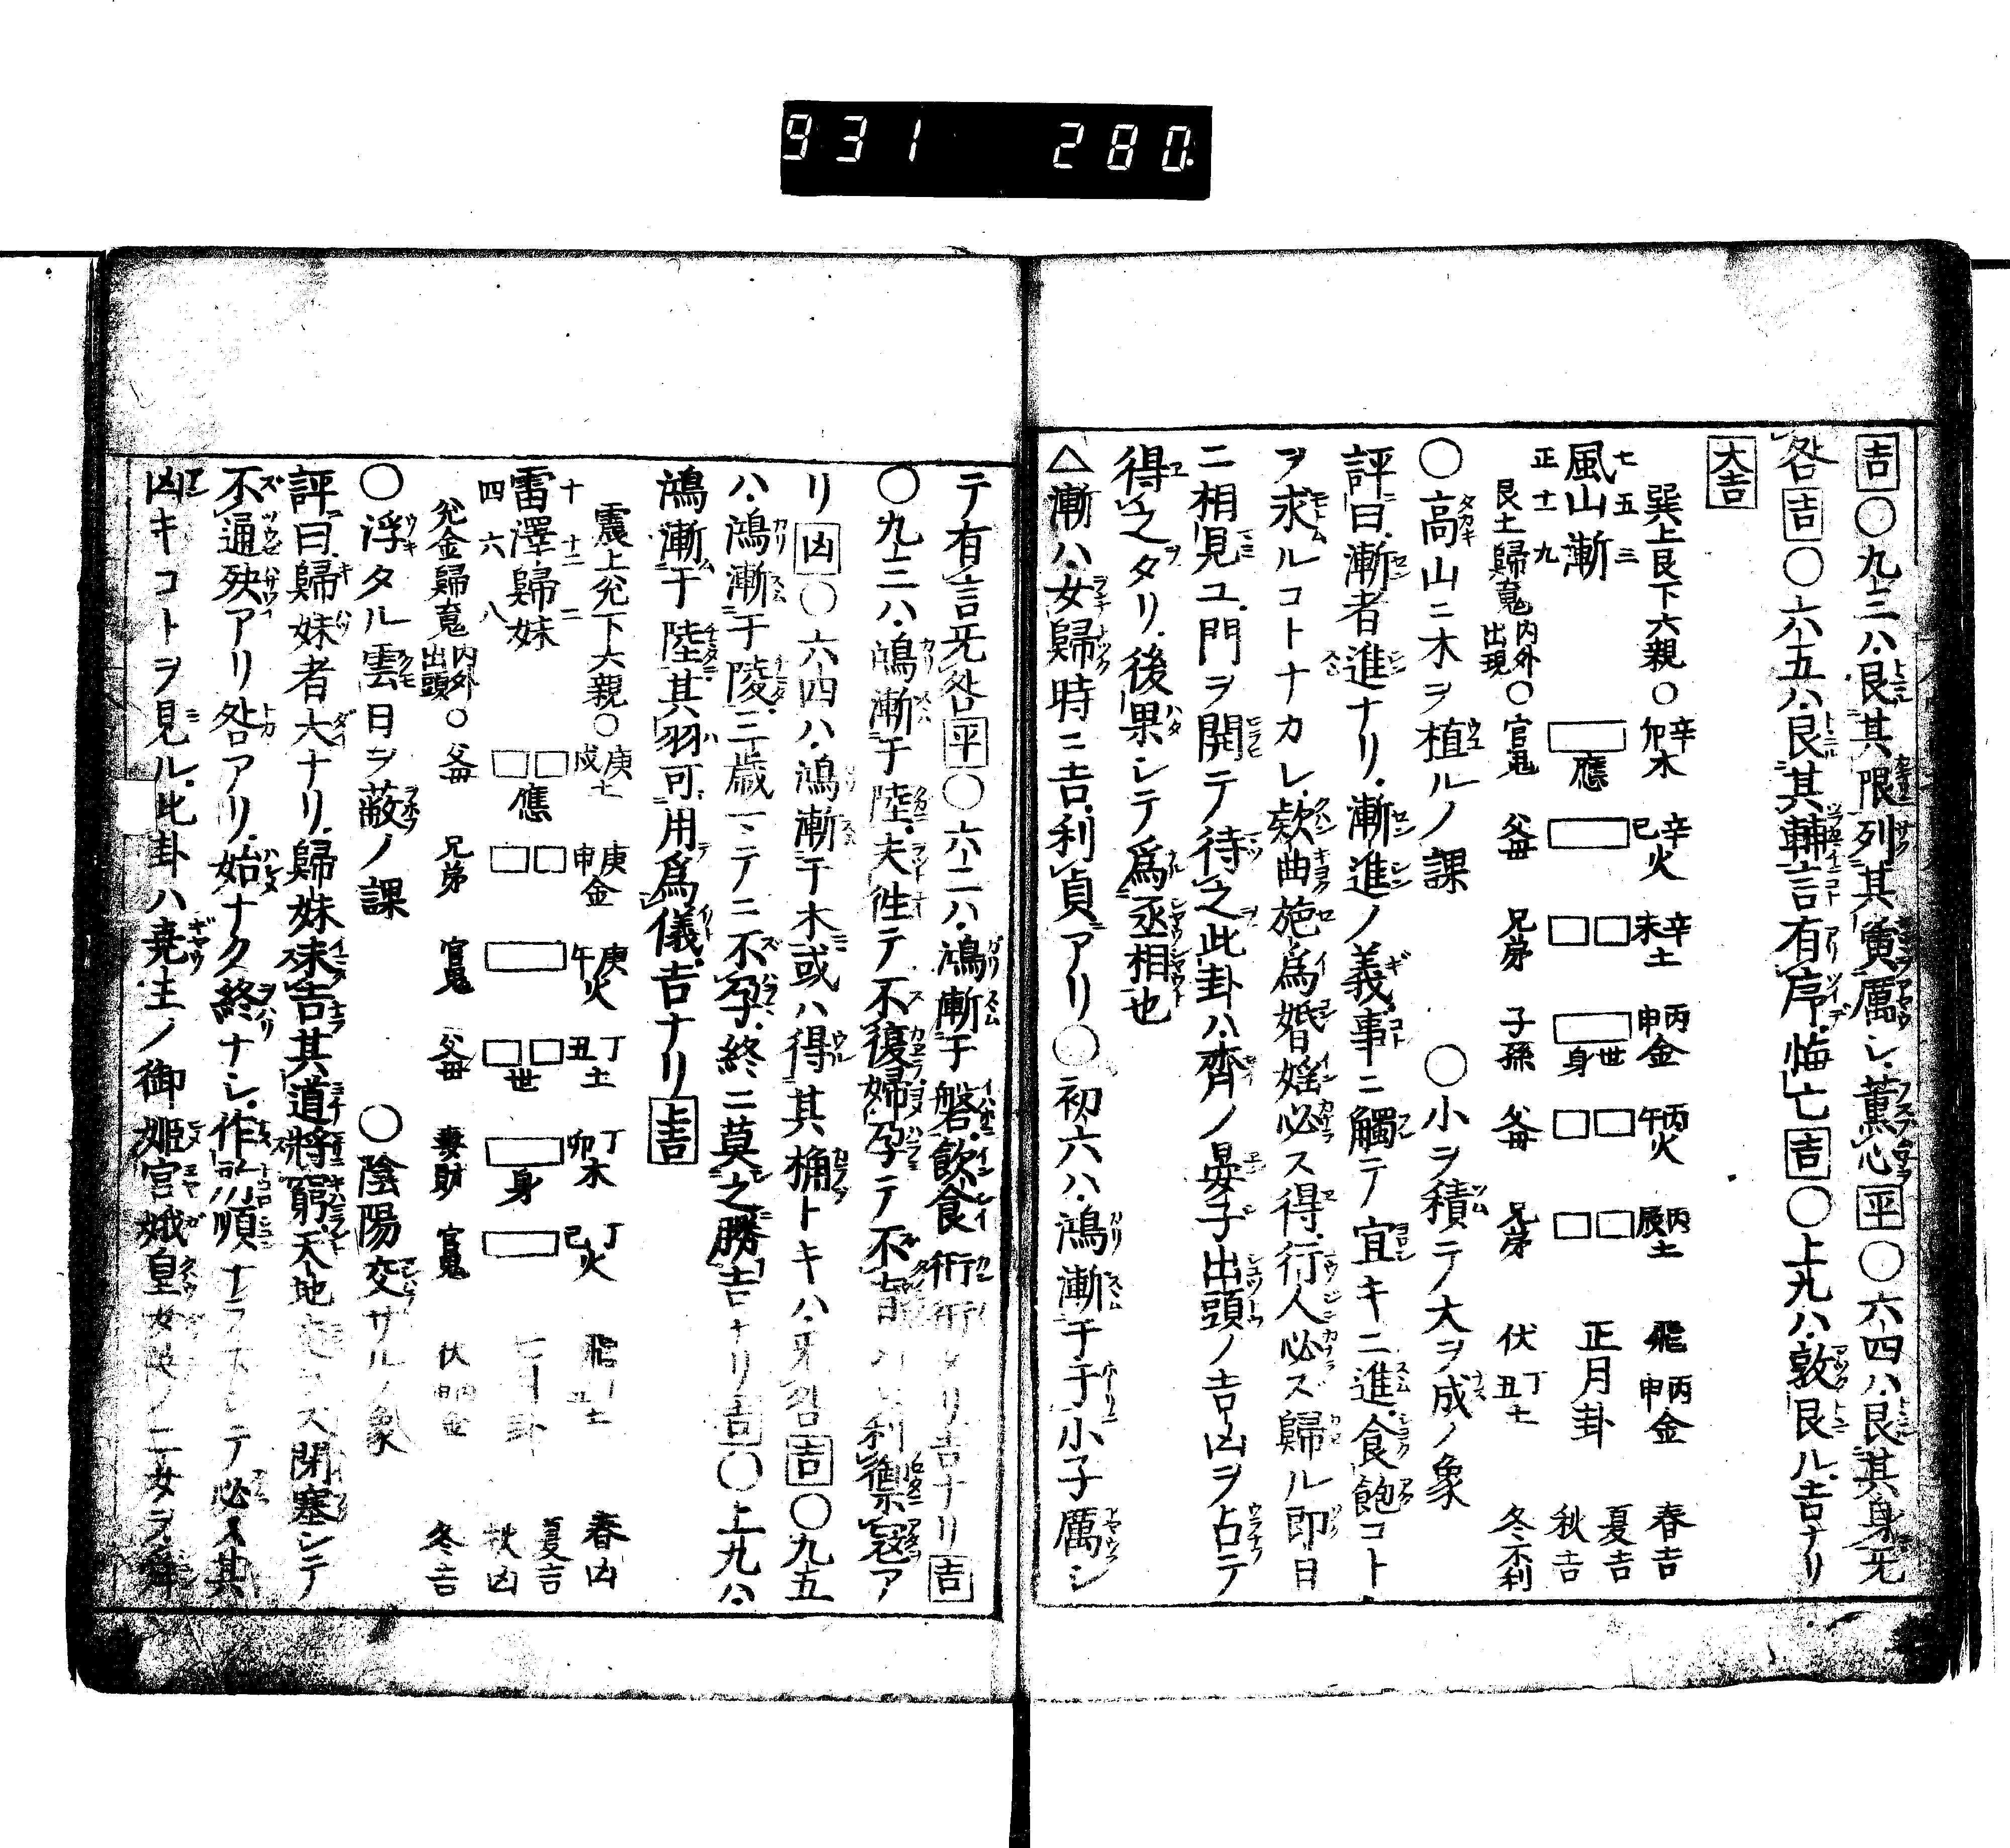 931 280
吉〇九三ハ艮其限列其夤厲シ薫心平〇六四ハ艮其身无
咎吉〇六五ハ艮其輔言有序悔亡吉〇上九ハ敦艮ル吉ナリ
大吉
巽上艮下六親〇
七 五 三
風山漸
正 十 九
艮土歸䰟 内外出現〇
辛卯木 應 官鬼
辛巳火 父母
辛未土 兄弟
丙申金 世身 子孫
丙午火 父母
丙辰土 兄弟
飛丙申金 正月卦 伏丁丑土
春吉 夏吉 秋吉 冬不利
〇高山ニ木ヲ植ルノ課 〇小ヲ積テ大ヲ成ノ象
評曰漸者進ナリ漸進ノ義事ニ觸テ宜キニ進食飽コト
ヲ求ルコトナカレ欵曲施爲婚婬必ス得行人必ス歸ル即日
ニ相見ユ門ヲ開テ待之此卦ハ齊ノ晏子出頭ノ吉凶ヲ占テ
得之タリ後果シテ爲丞相也
△漸ハ女歸時ニ吉利貞アリ〇初六ハ鴻漸于于小子厲シ
テ有言无咎平〇六二ハ鴻漸于磐飲食衎衎タリ吉ナリ吉
〇九三ハ鴻漸于陸夫徃テ不復婦孕テ不育 利禦寇ア
リ凶〇六四ハ鴻漸于木或ハ得其桷トキハ无咎吉〇九五
ハ鴻漸于陵三歳マテニ不孕終ニ莫之勝吉ナリ吉〇上九ハ
鴻漸于陸其羽可用爲儀吉ナリ上吉
震上兊下六親〇
十 十二 二
雷澤歸妹
四 六 八
兊金歸䰟 内外出頭〇
庚戌土 應 父母
庚申金 兄弟
庚午火 官鬼
丁丑土 世 父母
丁卯木 身 妻財
丁巳火 官鬼
飛 土 卦 伏 申金
春凶 夏吉 秋凶 冬吉
〇浮タル雲日ヲ蔽ノ課 〇陰陽交サルノ象
評曰歸妹者大ナリ歸妹未吉其道將窮天地 ス閉塞シテ
不通殃アリ咎アリ始ナク終ナシ作所順ナラスシテ必ス其
凶キコトヲ見ル此卦ハ堯王ノ御姫宮娥皇女英ノ二女ヲ舜